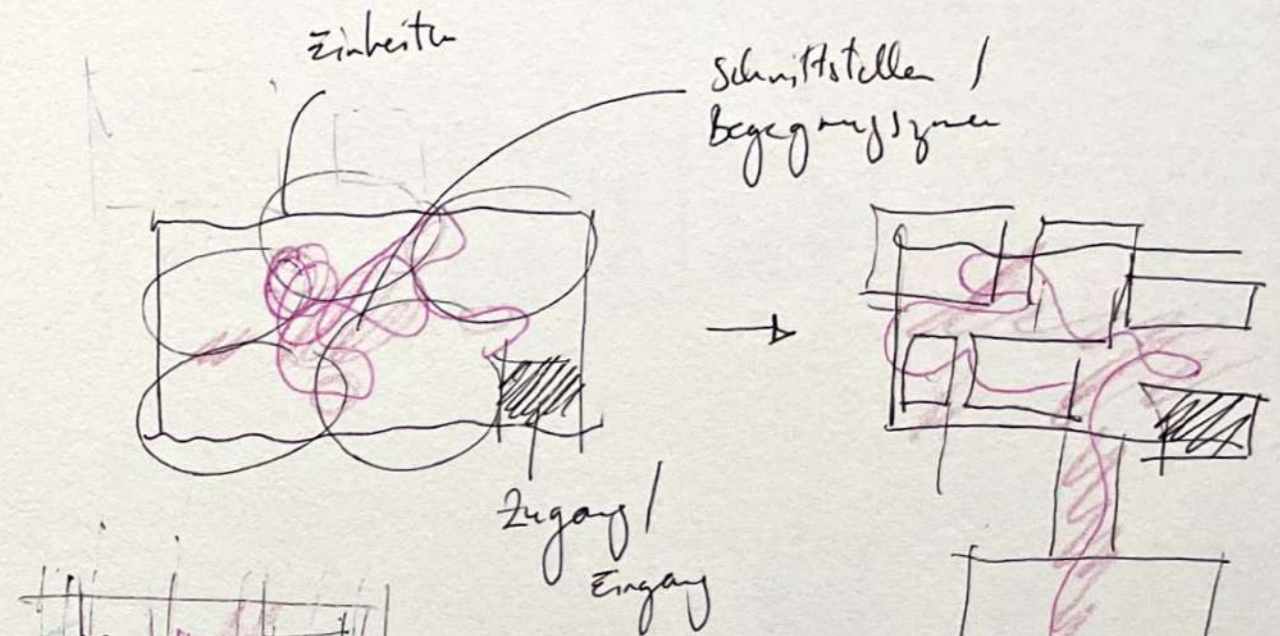 Einheiten
Schnittstellen /
Begegnungszonen
Zugang /
Eingang